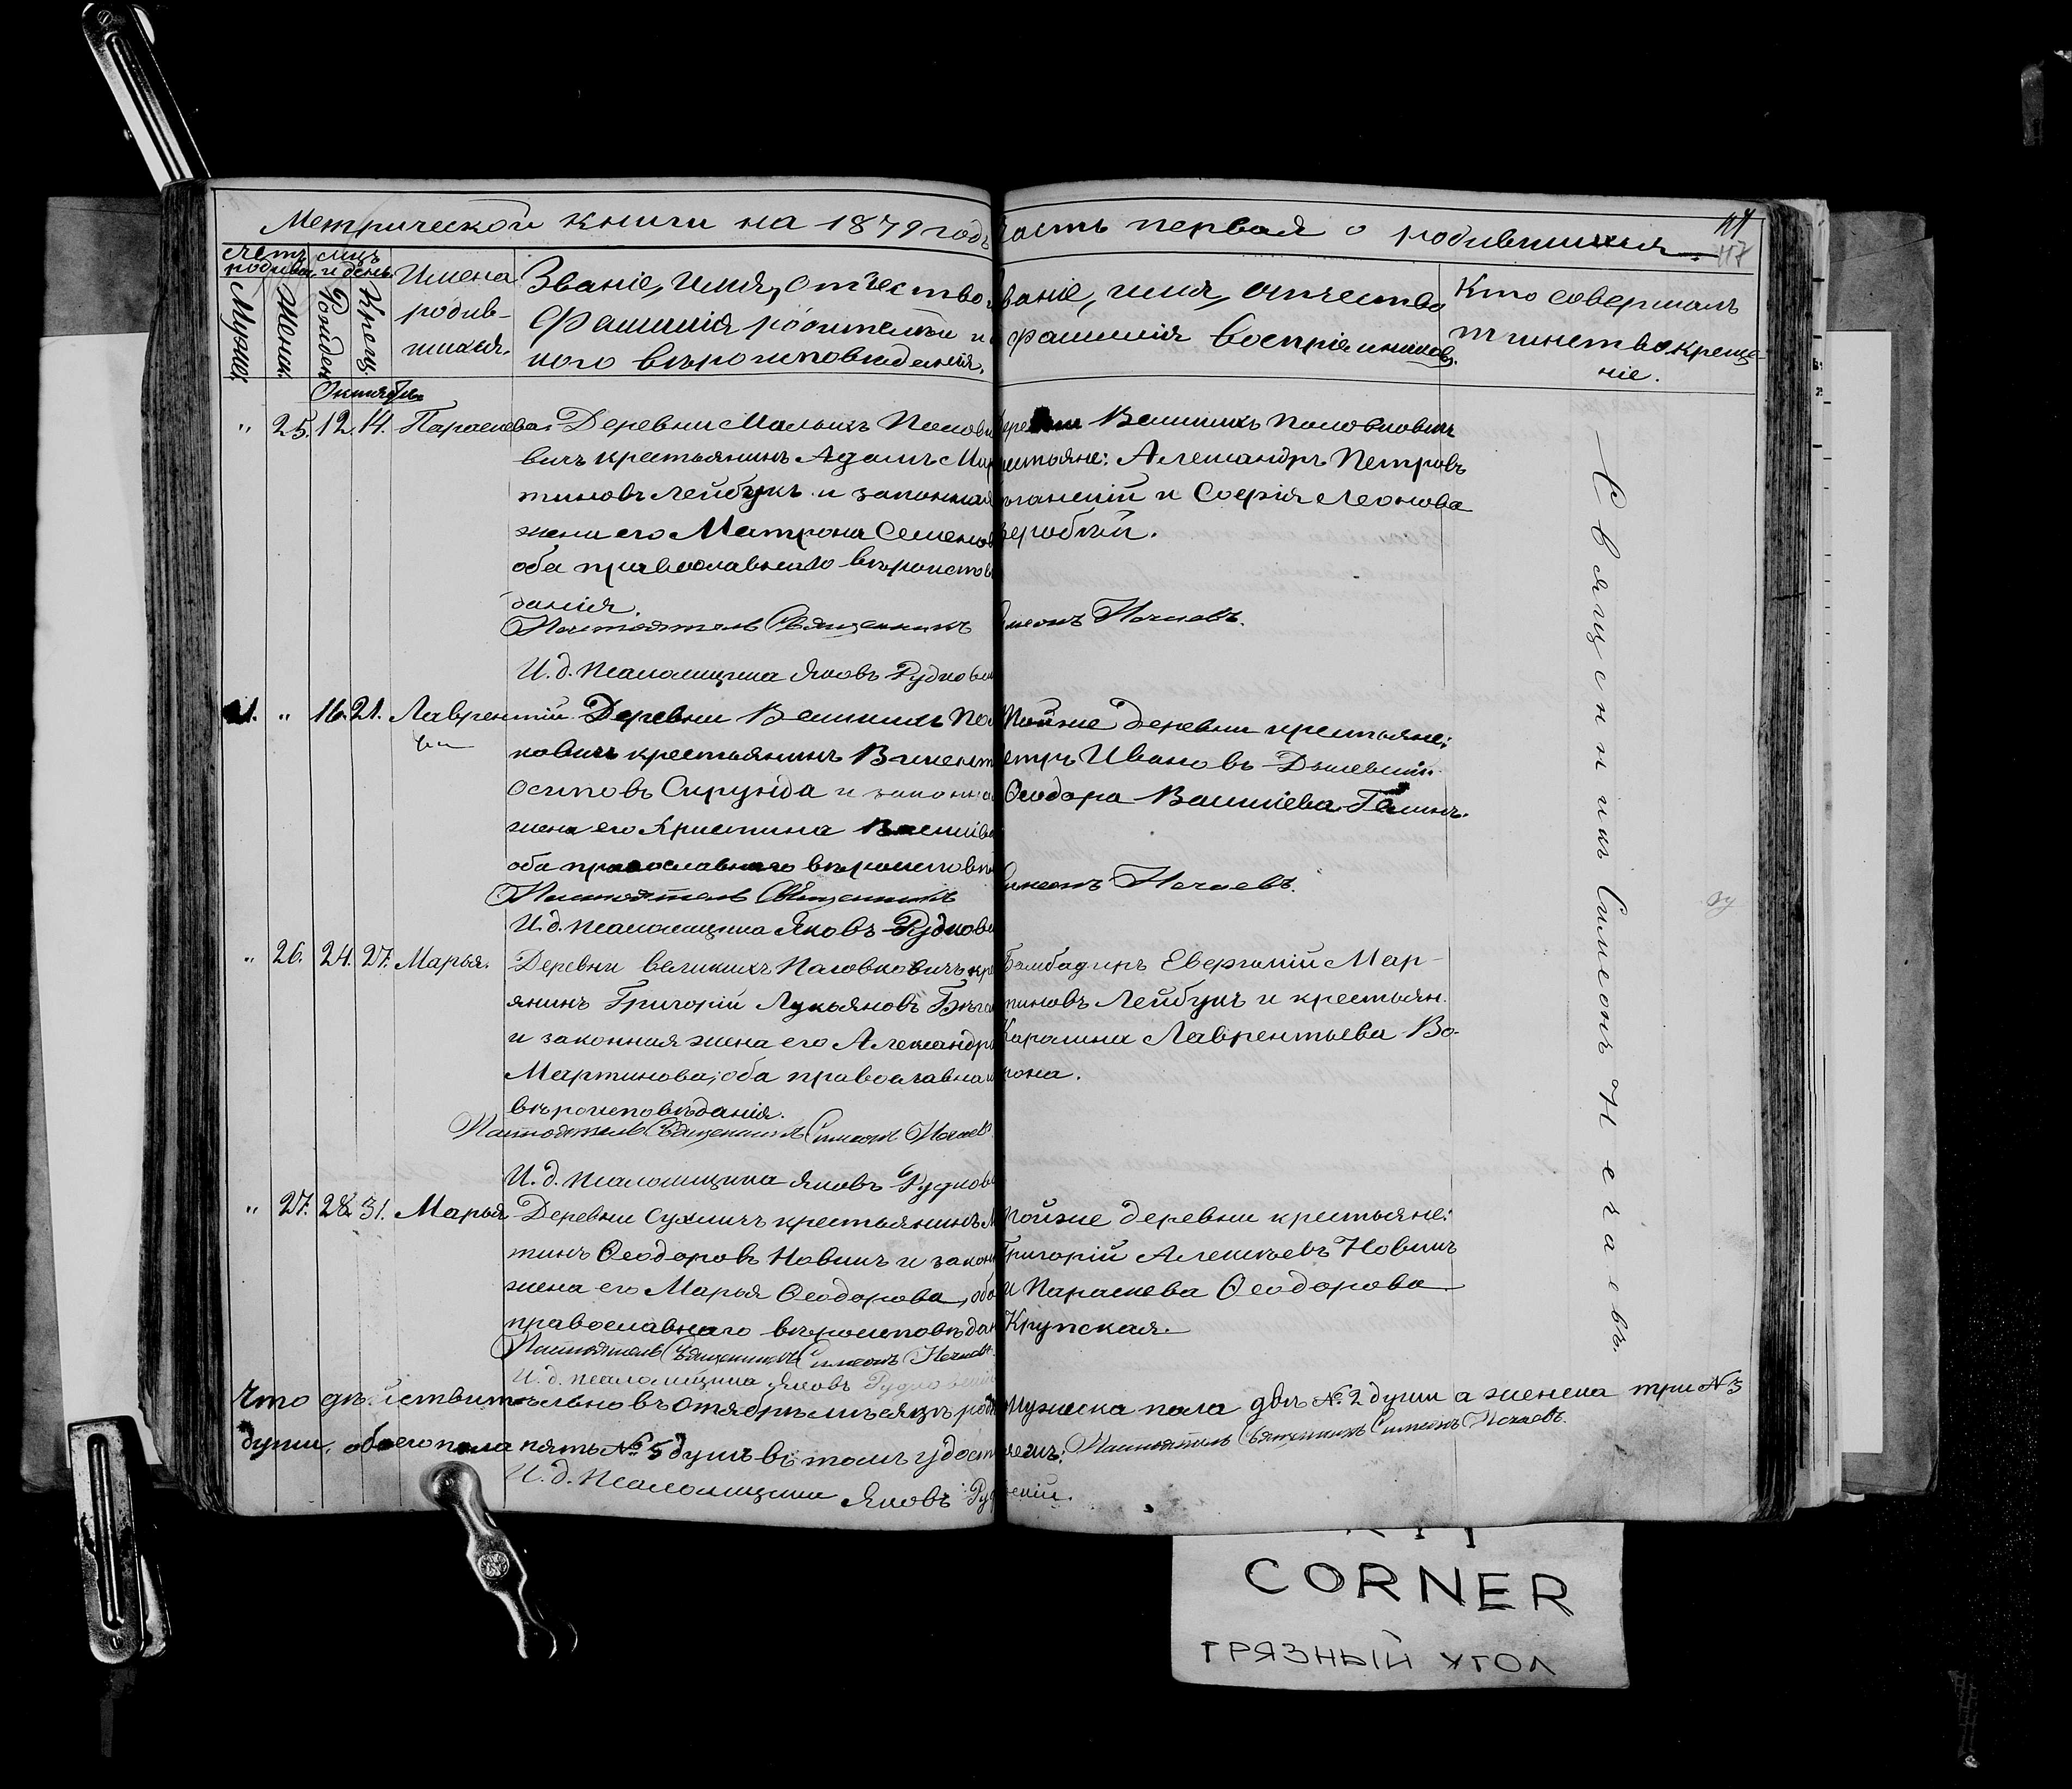 Метрической книги на 1879 годъ часть первая о родившихся.
117
Счетъ родивш.
Мужес.
Женск.
Мѣсяцъ и день
Рожден.
Крещ.
Имена
родив-
шихся.
Званіе, имя, отчество и
фамилія родителей и ка
кого вѣроисповѣданія.
Званіе, имя, отчество
фамилія воспріемниковъ.
Кто совершалъ
таинство креще-
ніе.
Октябрь
" 25. 12. 14. Параскева
Деревни Малыхъ Полов
вичъ крестьянинъ Адамъ Мар
тиновъ Лейбукъ и законная
жена его Матрона Семенов
оба православнаго вѣроиспов
данія.
Настоятель Священникъ Симеонъ Нечаевъ.
И. д. псаломщика Яковъ Рудков
Деревни Великихъ Половковичъ
крестьяне: Александръ Петровъ
и Софія Леонова
21. " 16. 21. Лаврентій
Деревни Великихъ По
ковичъ крестьянинъ Викент
Осиповъ Скрунда и законна
жена его Христина
оба православнаго вѣроисповѣ
Настоятель Священникъ Симеонъ Нечаевъ.
И. д. псаломщика Яковъ Рудков
Тойже деревни крестьяне:
Петръ Ивановъ
Ѳеодора
" 26. 24. 27. Марья.
Деревни великихъ Половковичъ кре
янинъ Григорій Лукьяновъ
и законная жена его Александра
Мартинова, оба православна
вѣроисповѣданія.
Настоятель Священникъ Симеонъ Нечаевъ
И. д. псаломщика Яковъ Рудков
Мар-
тиновъ Лейбукъ и крестьян.
Каролина Лаврентьева Во-
рона.
" 27. 28. 31. Марья
Деревни Сухличъ крестьянинъ
тинъ Ѳеодоровъ Новикъ и закон
жена его Марья Ѳеодорова, оба
православнаго вѣроисповѣдан
Настоятель Священникъ Симеонъ Нечаевъ
И. д. псаломщика Яковъ Рудковскій
Тойже деревни крестьяне:
Григорій Алексѣевъ Новикъ
и Параскева Ѳеодорова
Крупская.
Священникъ Симеонъ Нечаевъ.
Что дѣйствительно въ Отябрѣ мѣсяцѣ род мужеска пола двѣ № 2 души а женска три № 3
души, обоего пола пять № 5 душъ въ томъ удостовѣряемъ: Настоятель Священникъ Симеонъ Нечаевъ.
И. д. Псаломщика Яковъ Рудковскій.
CORNER
ГРЯЗНЫЙ УГОЛ